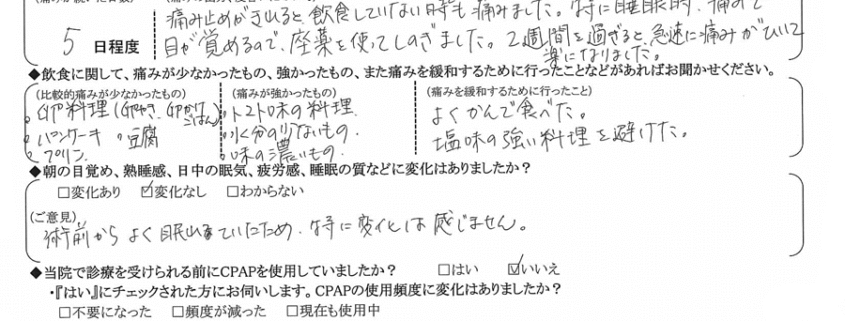 痛み止めがきれると飲食していない時も痛みました。特に睡眠時、痛みで
5 日程度
目が覚めるので、座薬を使ってしのぎました。2週間を過ぎると急速に痛みがひいて
楽になりました。
◆飲食に関して、痛みが少なかったもの、強かったもの、また痛みを緩和するために行ったことなどがあればお聞かせください。
(比較的痛みが少なかったもの) (痛みが強かったもの) (痛みを緩和するために行ったこと)
卵料理(卵やき、卵かけごはん)
パンケーキ 豆腐
プリン
トマト味の料理
水分の少ないもの
味の濃いもの
よくかんで食べた。
塩味の強い料理を避けた。
◆朝の目覚め、熟睡感、日中の眠気、疲労感、睡眠の質などに変化はありましたか?
□変化あり ☑変化なし □わからない
(ご意見)
術前からよく眠れていたため、特に変化は感じません。
◆当院で診療を受けられる前にCPAPを使用していましたか? □はい ☑いいえ
・『はい』にチェックされた方にお伺いします。CPAPの使用頻度に変化はありましたか?
□不要になった □頻度が減った □現在も使用中